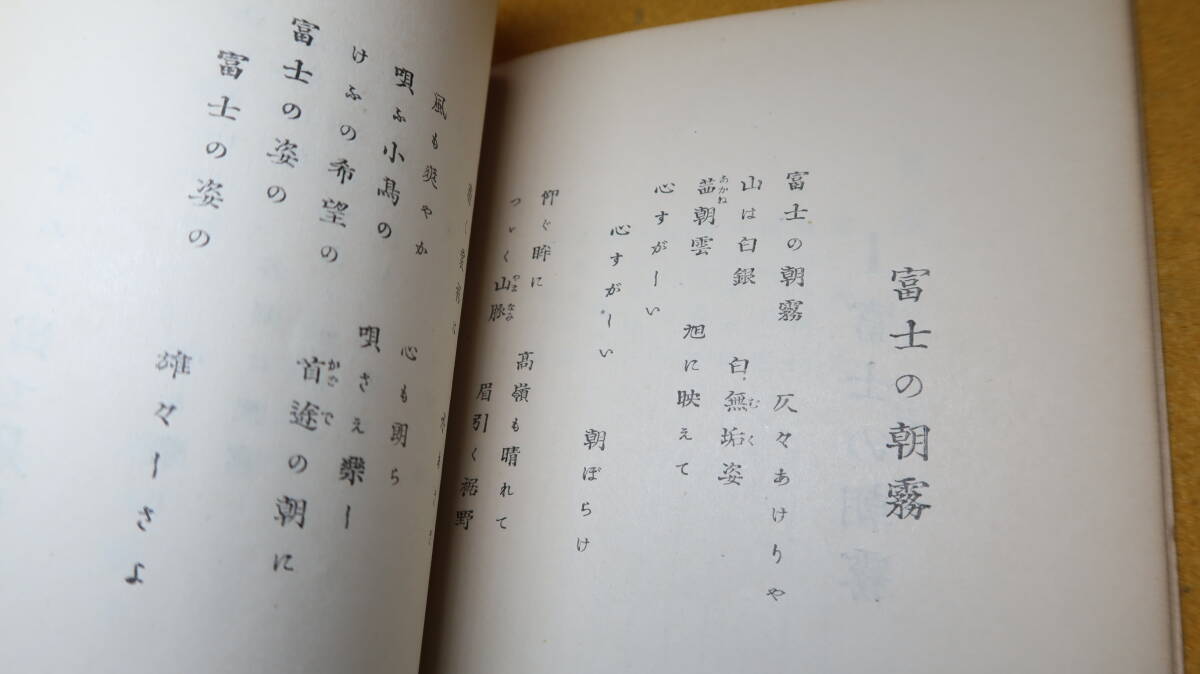 富士の朝霧
富士の朝霧　仄々あけりや
山は白銀　白無垢姿
むく
茜朝雲　旭に映えて
あかね
心すがしい
心すがしい　朝ぼらけ
仰ぐ眸に　高嶺も晴れて
つゞく山脉　眉引く裾野
やまなみ
風も爽やか　心も朗ら
唄ふ小鳥の　唄さえ樂し
けふの希望の　首途の朝に
かどで
富士の姿の
富士の姿の　雄々しさよ